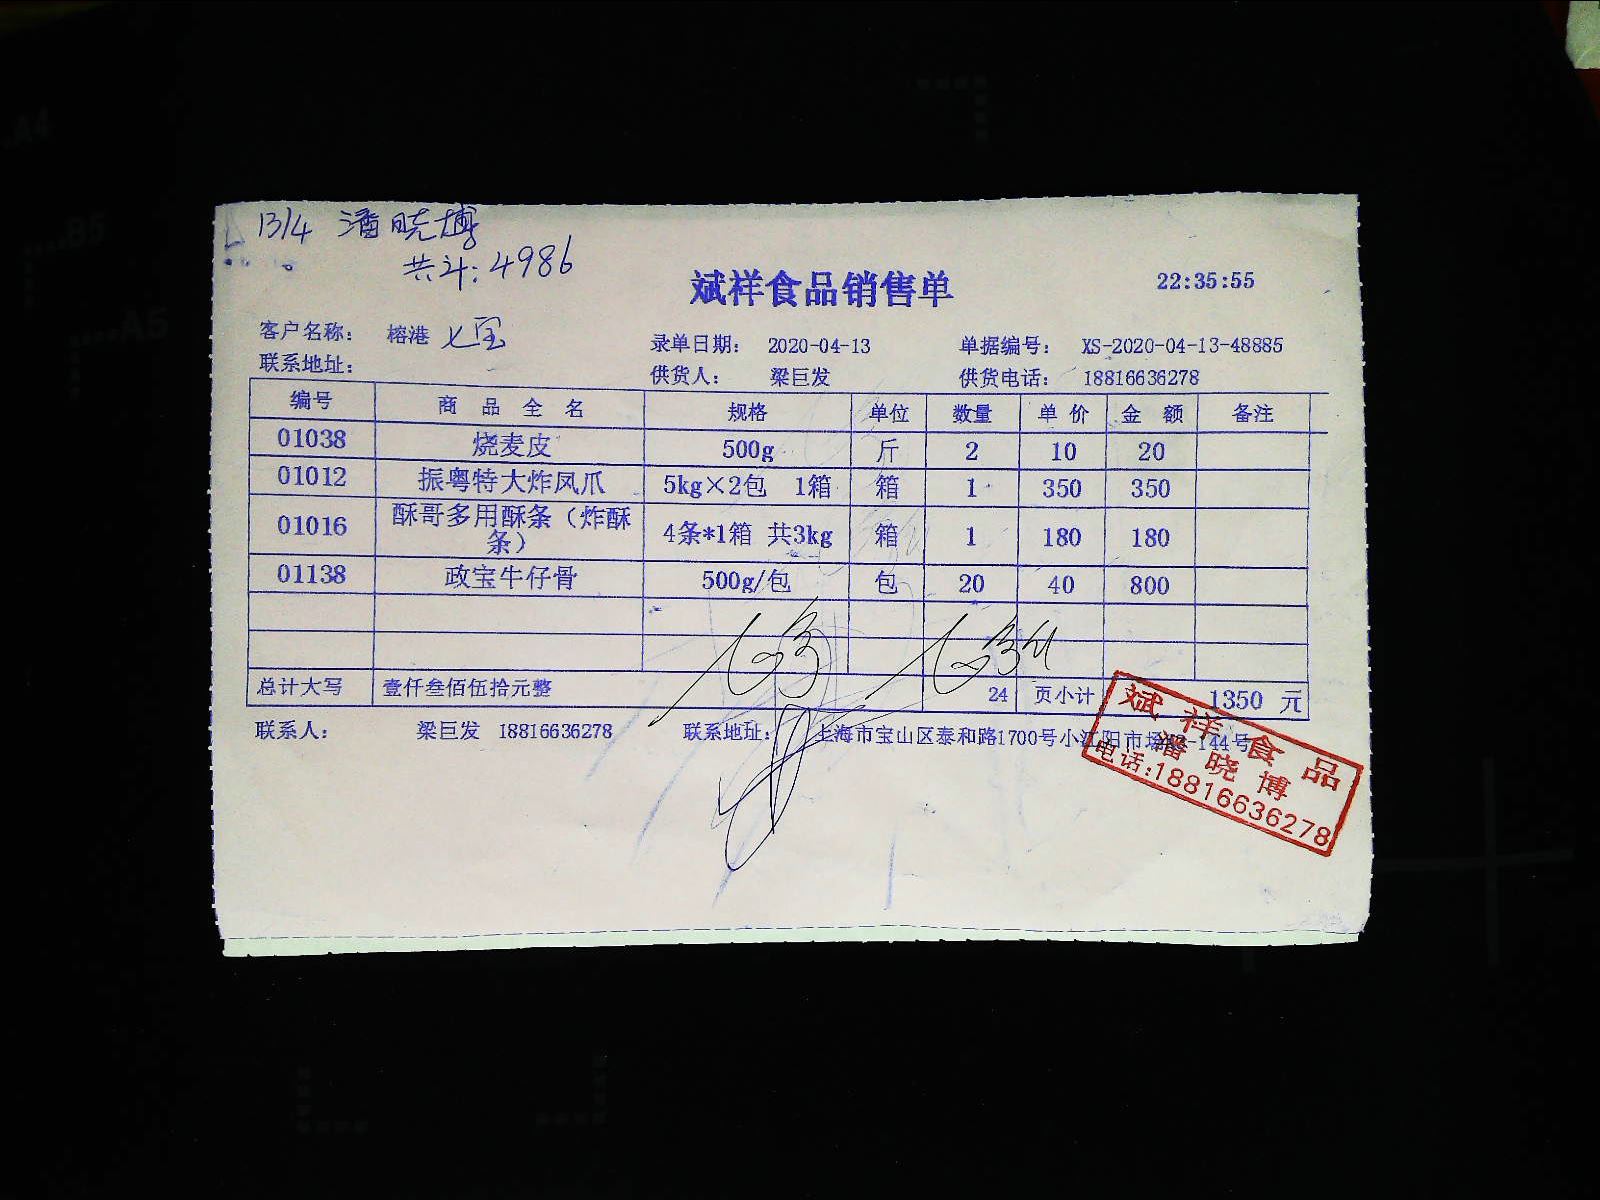 13/4 潘晓博
共斗:4986
斌祥食品销售单 22:35:55
客户名称: 榕港 七宝 录单日期: 2020-04-13 单据编号: XS-2020-04-13-48885
联系地址: 供货人: 梁巨发 供货电话: 18816636278
编号 商品全名 规格 单位 数量 单价 金额 备注
01038 烧麦皮 500g 斤 2 10 20
01012 振粤特大炸凤爪 5kg×2包 1箱 箱 1 350 350
01016 酥哥多用酥条（炸酥条） 4条*1箱 共3kg 箱 1 180 180
01138 政宝牛仔骨 500g/包 包 20 40 800
总计大写 壹仟叁佰伍拾元整 24 页小计 1350 元
联系人: 梁巨发 18816636278 联系地址: 上海市宝山区泰和路1700号小江阳市场 -144号
斌祥食品
潘晓博
电话:18816636278